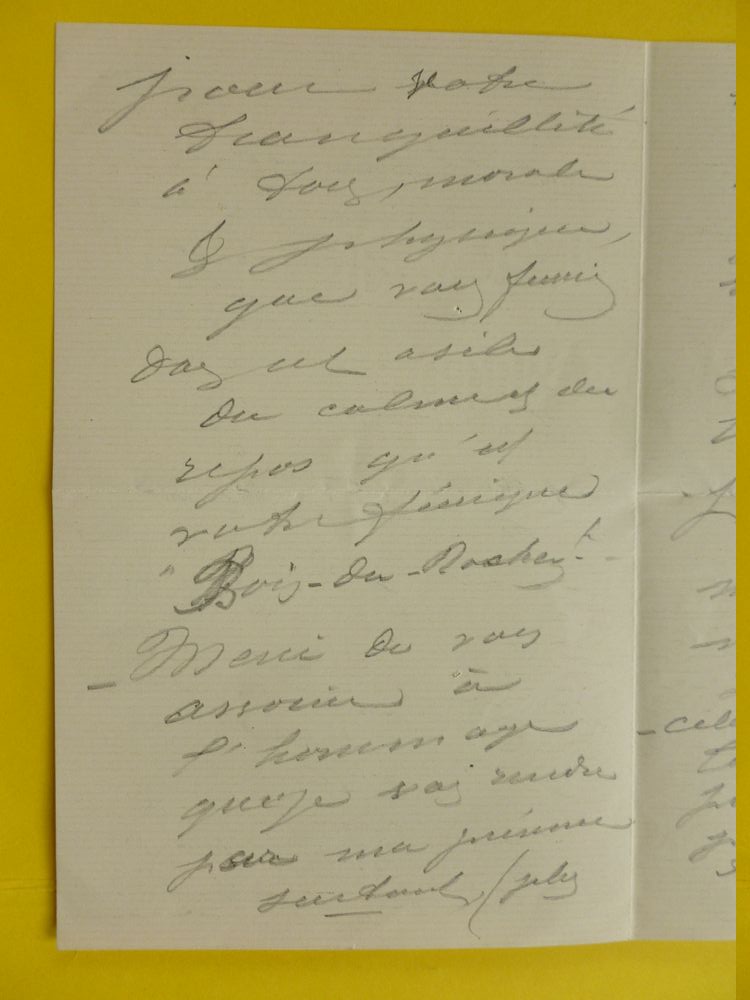 pour votre
tranquillité
à tous, morale
& physique,
que vous fussiez
dans cet asile
du calme et du
repos qu'est
votre féerique
"Bois-du-Rocher"! -
- Merci de vous
associer à
l'hommage
que je vais rendre
par ma présence
surtout, (plus
- cel